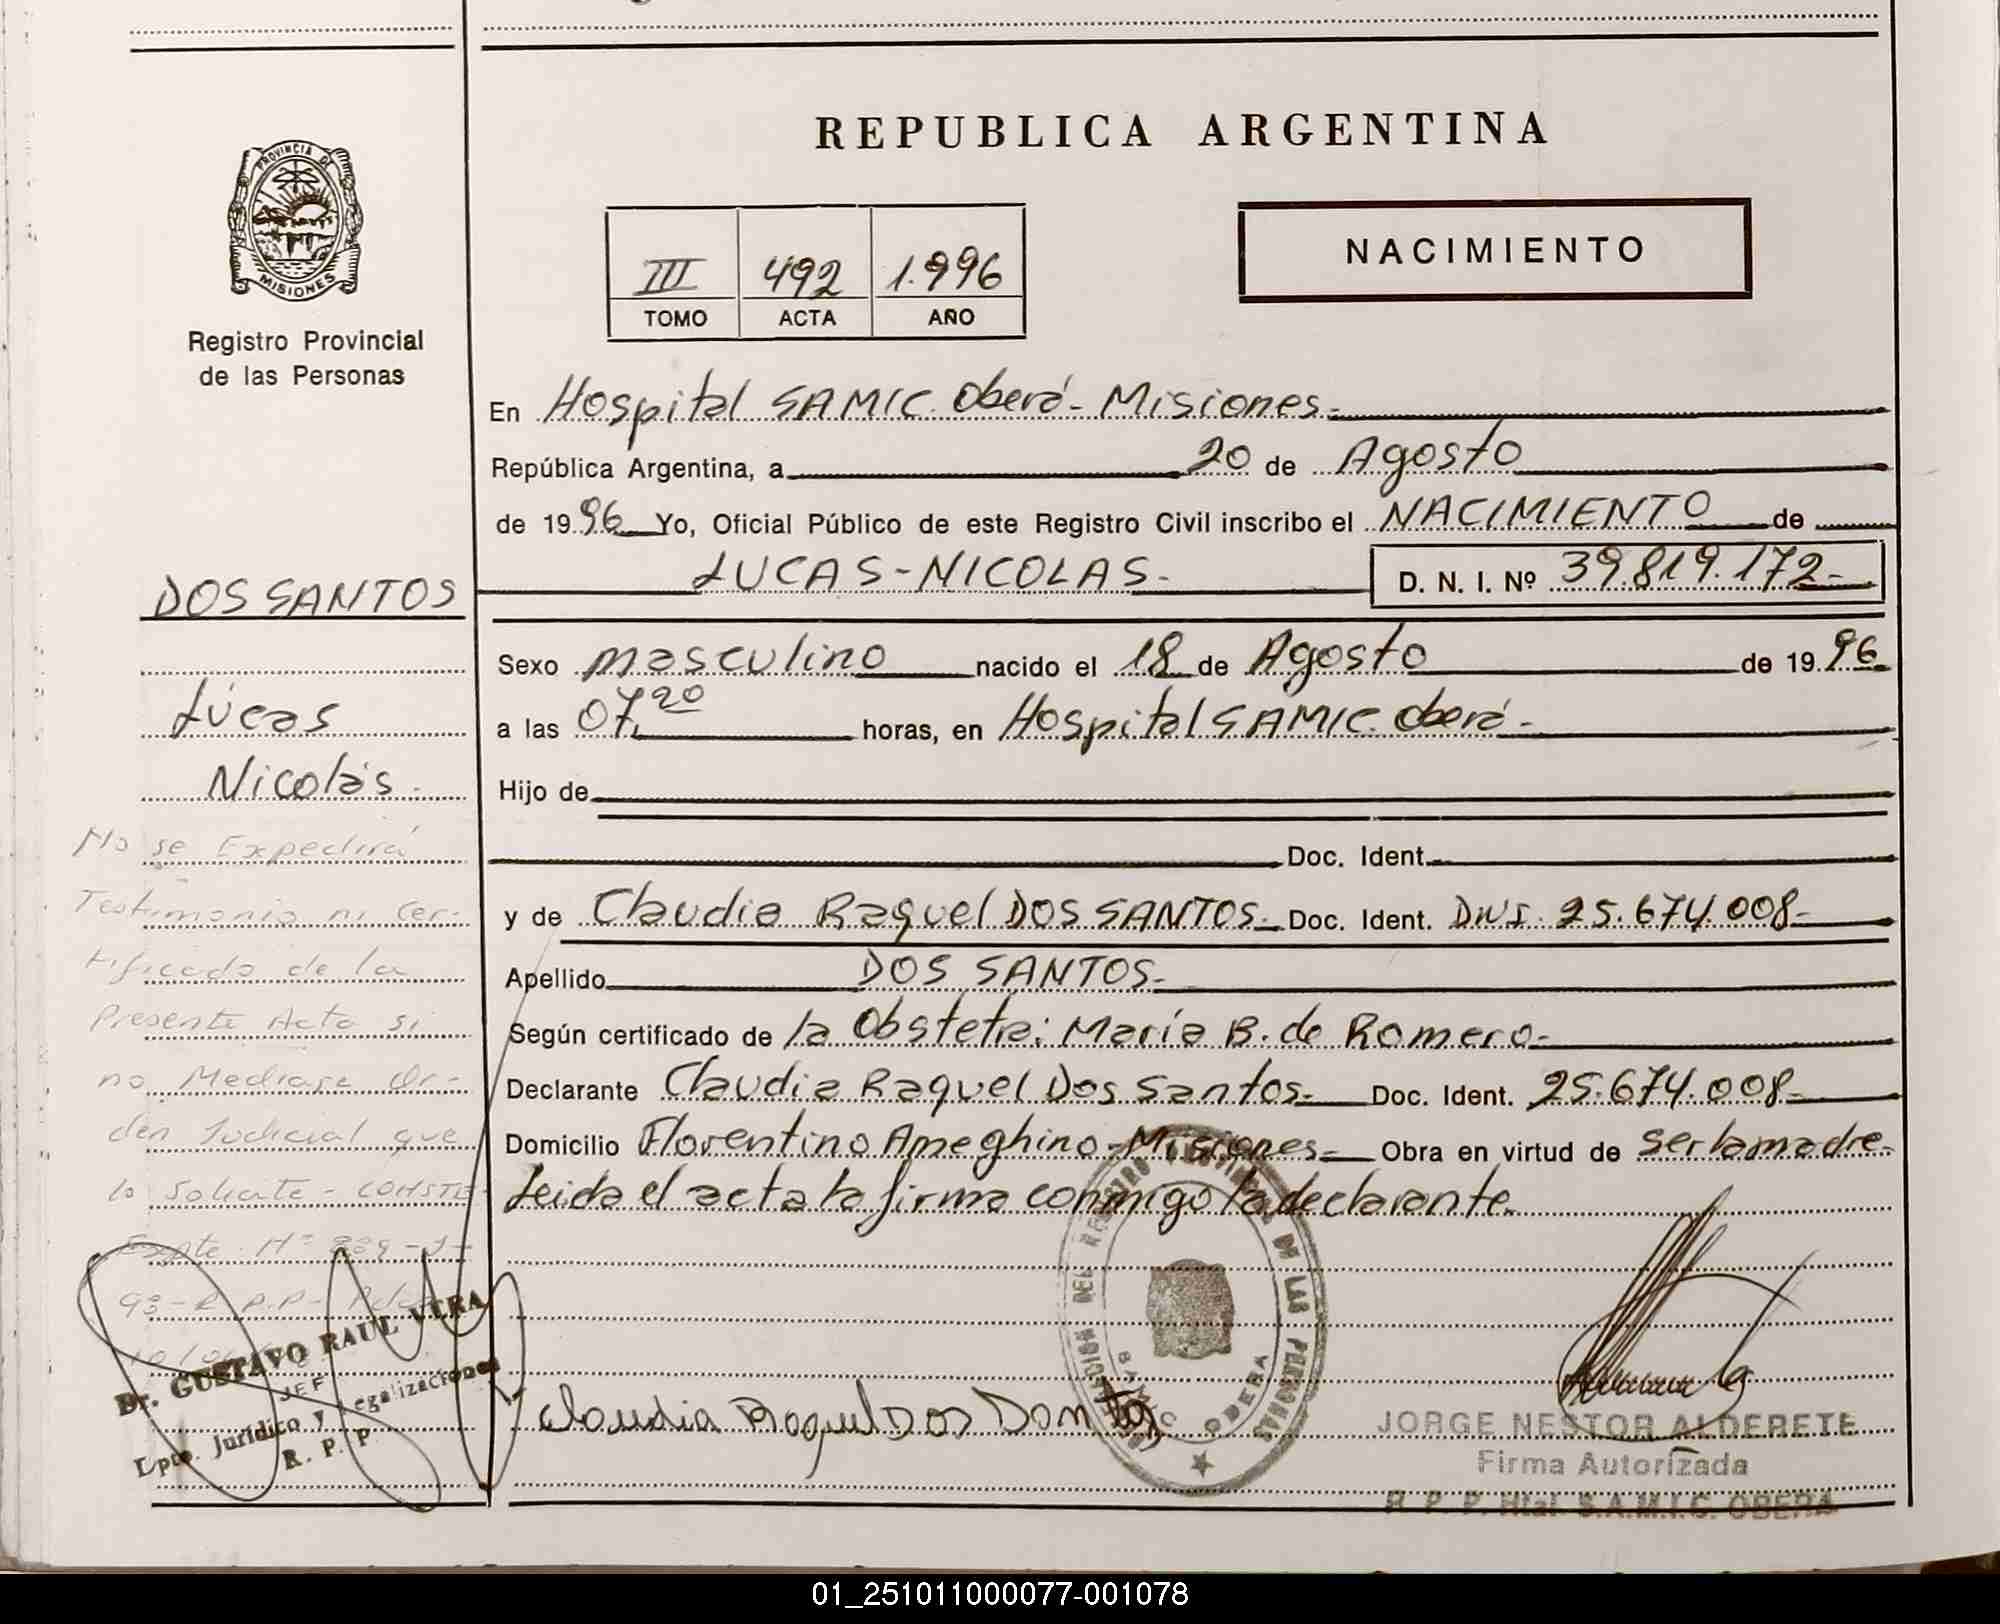 REPUBLICA ARGENTINA
PROVINCIA DE
MISIONES
Registro Provincial
de las Personas
III 492 1.996
TOMO ACTA AÑO
NACIMIENTO
En Hospital SAMIC. Oberá - Misiones.-
República Argentina, a 20 de Agosto
de 1996 Yo, Oficial Público de este Registro Civil inscribo el NACIMIENTO de
LUCAS-NICOLAS.- D. N. I. Nº 39.819.172-
Sexo masculino nacido el 18 de Agosto de 1996
a las 07,20 horas, en Hospital SAMIC. Oberá -
Hijo de
Doc. Ident.
y de Claudia Raquel DOS SANTOS.- Doc. Ident. D.N.I. 25.674.008-
Apellido DOS SANTOS.-
Según certificado de la Obstetra: María B. de Romero-
Declarante Claudia Raquel Dos Santos.- Doc. Ident. 25.674.008-
Domicilio Florentino Ameghino-Misiones.- Obra en virtud de ser la madre.
Leida el acta la firma conmigo la declarante.
DOS SANTOS
Lúcas
Nicolás.
No se Expedirá
Testimonio ni Cer-
tificado de la
Presente Acta si
no Mediase Or-
den Judicial que
lo Solicite - CONSTE-
Expte. Nº 289-J-
93-R.P.P-
Dr. GUSTAVO RAUL VERA
JEF
Dpto. Jurídico y Legalizaciones
R. P. P
Claudia Raquel Dos Santos
DEL REGISTRO PROVINCIAL DE LAS PERSONAS
OBERA
JORGE NESTOR ALDERETE
Firma Autorizada
R. P. P. Htal. S.A.M.I.C. OBERA
01_251011000077-001078